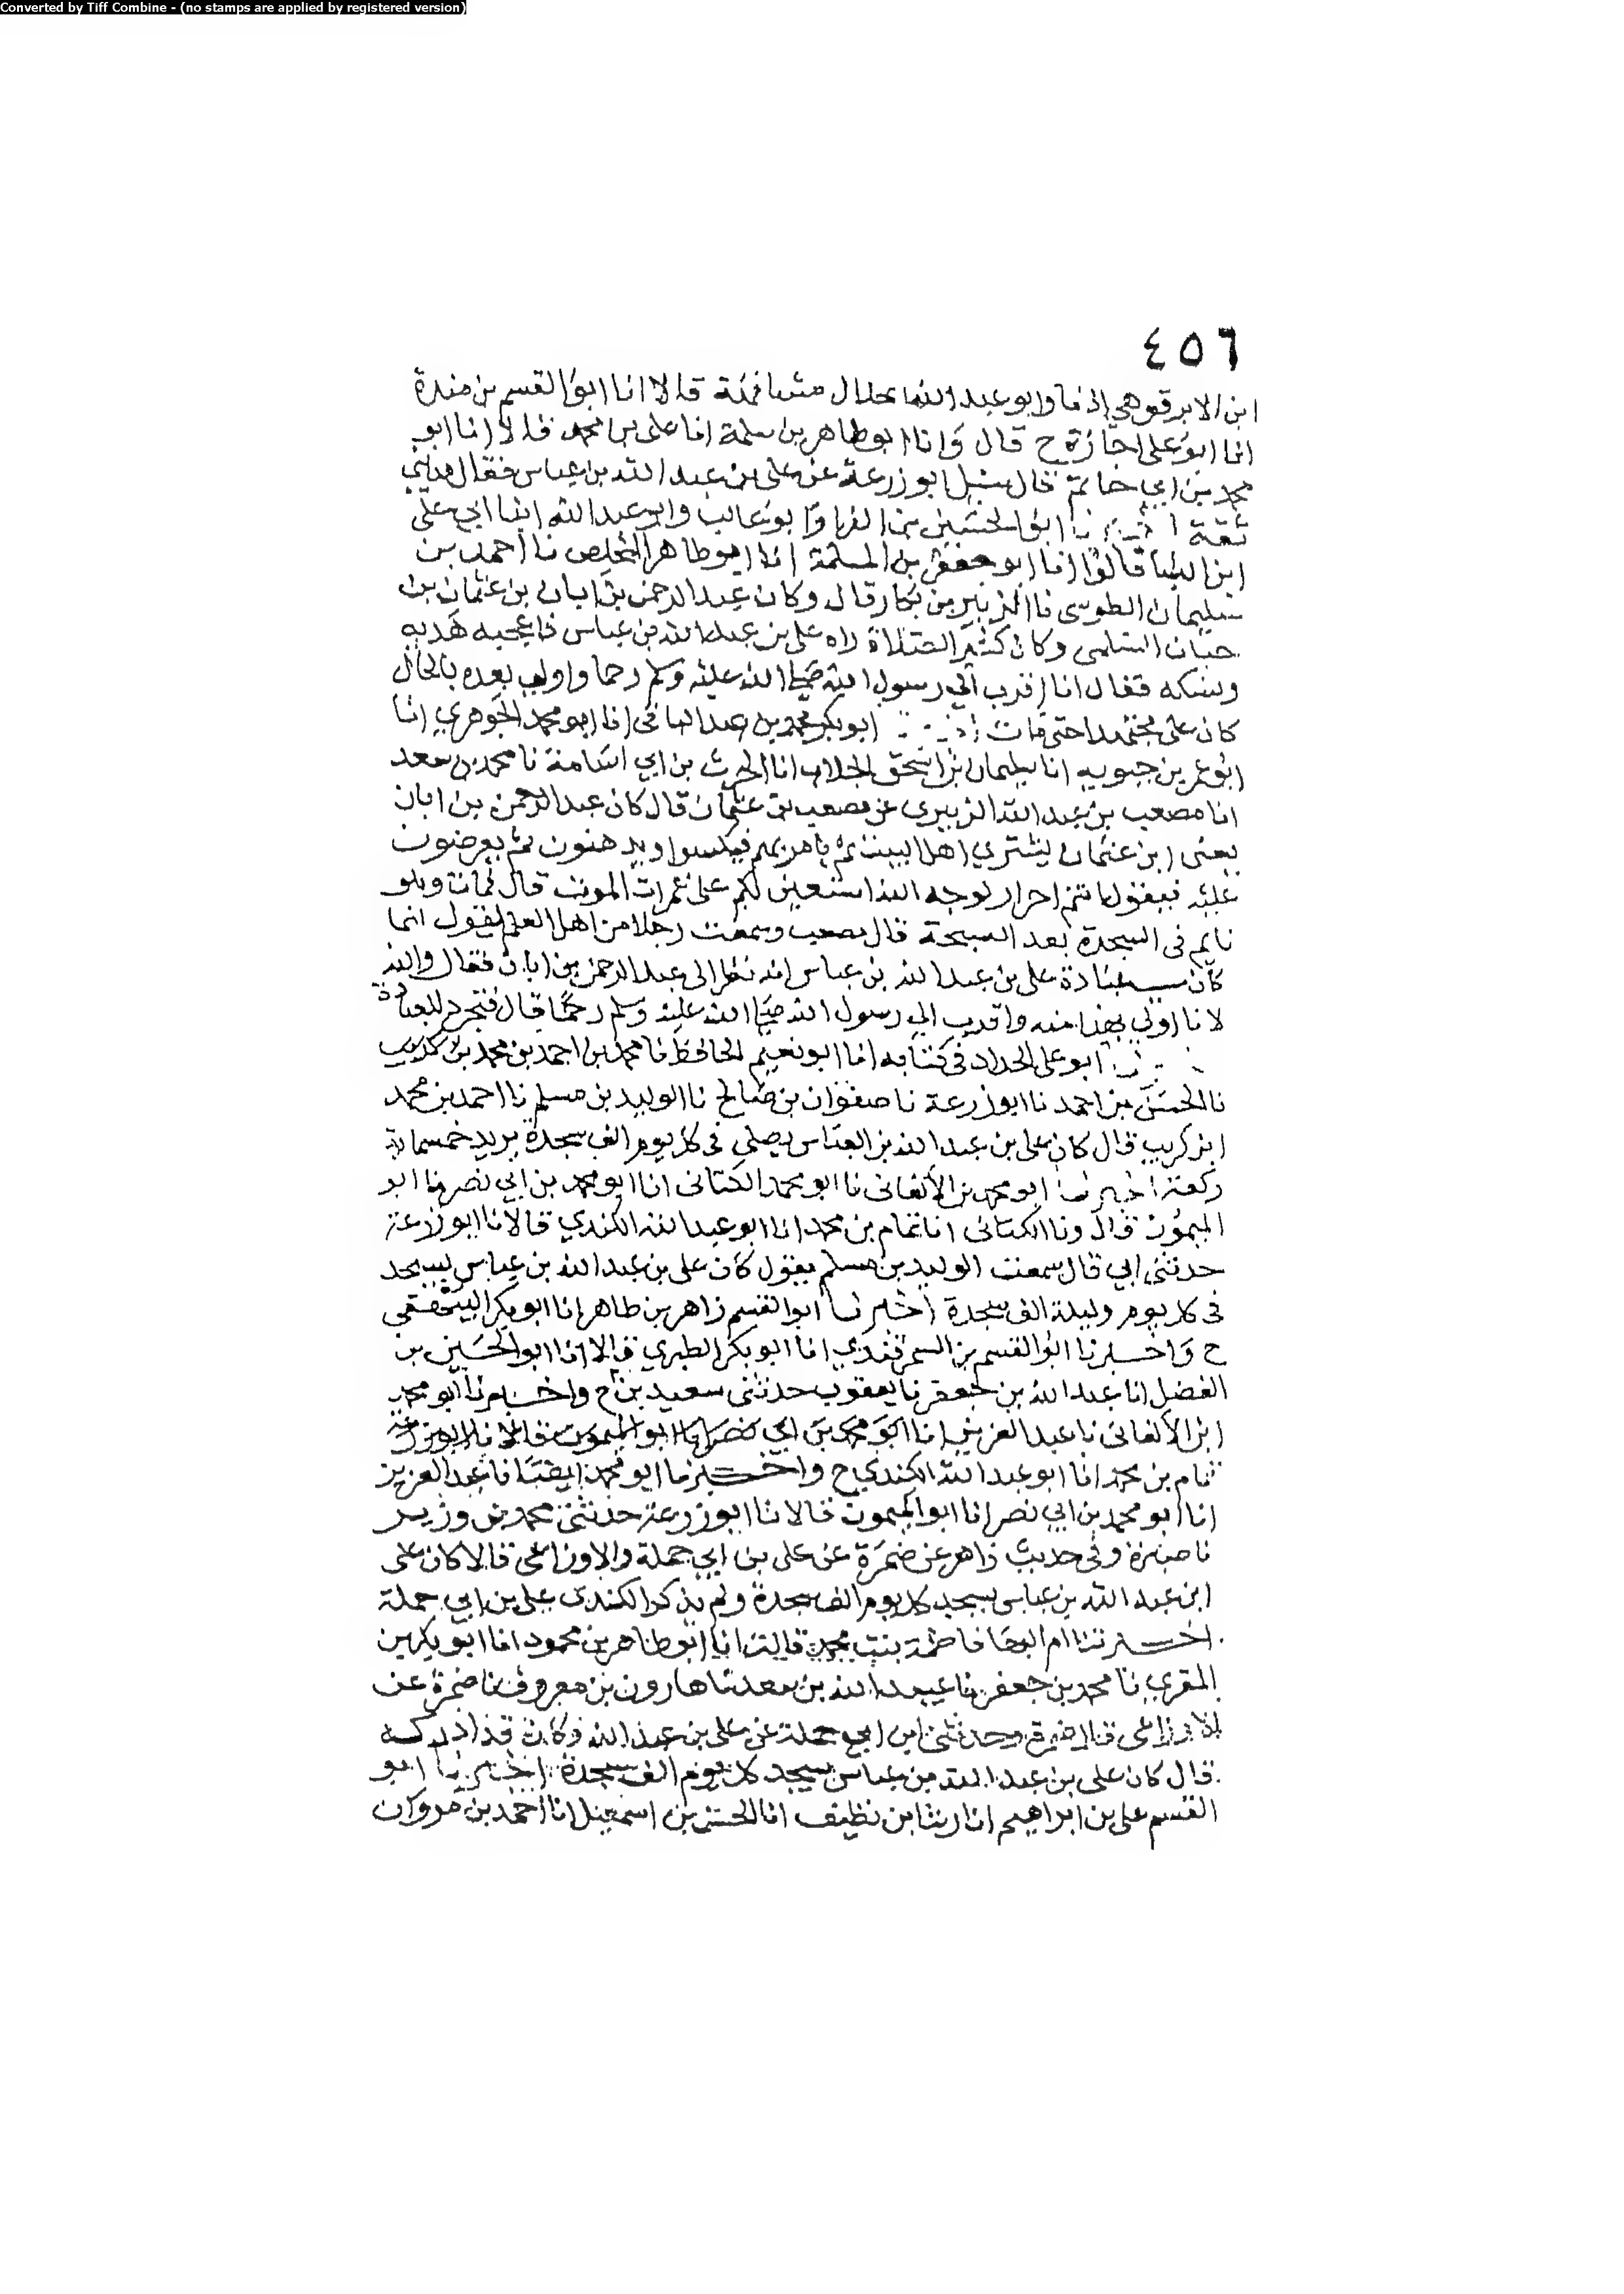 Converted by Tiff Combine - (no stamps are applied by registered version)
٤٥٦
ابن الابرقوهي اذنا وابو عبد الله الخلال مشافهة قالا انا ابو القسم بن مندة
انا ابو علي اجازة ح قال وانا ابو طاهر بن سلمة انا علي بن محمد قالا انا ابو
محمد بن ابي حاتم قال سئل ابو زرعة عن علي بن عبد الله بن عباس فقال مديني
ثقة ابو الحسين بن الفرا وابو غالب وابو عبد الله ابنا ابي علي
ابن البنا قالوا انا ابو جعفر بن المسلمة انا ابو طاهر المخلص نا احمد بن
سليمان الطوسي نا الزبير بن بكار قال وكان عبد الرحمن بن ابان بن عثمان بن
حيان السلمي وكان كثير الصلاة راه علي بن عبد الله بن عباس فاعجبه هديه
ونسكه فقال انا اقرب الي رسول الله صلى الله عليه وسلم رحما واولي بهده بالحال
كان علي مجتهدا حتى مات ابو بكر محمد بن عبد الباقي انا ابو محمد الجوهري انا
ابو عمر بن حيويه انا سليمان بن اسحق الجلاب انا الحرث بن ابي اسامة نا محمد بن سعد
انا مصعب بن عبد الله الزبيري عن مصعب بن عثمان قال كان عبد الرحمن بن ابان
يعني ابن عثمان يشتري اهل البيت ثم يامر بهم فيكسوا ويدهنون ثم يعرضون
عليه فيقول انتم احرار لوجه الله استعين بكم على غمرات الموت قال فمات وهو
نايم في السجدة بعد السبحة قال مصعب وسمعت رجلا من اهل العلم يقول انما
كان سبب عبادة علي بن عبد الله بن عباس انه نظر الى عبد الرحمن بن ابان فقال والله
لانا اولي بهذا منه واقرب الي رسول الله صلى الله عليه وسلم رحما قال فتجرد للعبادة
ابو علي الحداد في كتابه انا ابو نعيم الحافظ نا محمد بن احمد بن محمد بن كريب
نا الحسن بن احمد نا ابو زرعة نا صفوان بن صالح نا الوليد بن مسلم نا احمد بن محمد
ابن كريب قال كان علي بن عبد الله بن العباس يصلي في كل يوم الف سجدة يريد خمسماية
ركعة اخبرنا ابو محمد بن الاكفاني نا ابو محمد الكتاني انا ابو محمد بن ابي نصر انا ابو
الميمون قال ونا الكتاني انا تمام بن محمد انا ابو عبد الله الكندي قالا نا ابو زرعة
حدثني ابي قال سمعت الوليد بن مسلم يقول كان علي بن عبد الله بن عباس يسجد
في كل يوم وليلة الف سجدة اخبرنا ابو القسم زاهر بن طاهر انا ابو بكر البيهقي
ح واخبرنا ابو القسم بن السمرقندي انا ابو بكر الطبري قالا انا ابو الحسين بن
الفضل انا عبد الله بن جعفر نا يعقوب حدثني سعيد بن ح واخبرنا ابو محمد
ابن الاكفاني نا عبد العزيز انا ابو محمد بن ابي نصر انا ابو الميمون قالا نا ابو زرعة
تمام بن محمد انا ابو عبد الله الكندي ح واخبرنا ابو محمد ايضا نا عبد العزيز
انا ابو محمد بن ابي نصر انا ابو الميمون قالا نا ابو زرعة حدثني محمد بن وزير
نا ضمرة وفي حديث زاهر عن ضمرة عن علي بن ابي حملة والاوزاعي قالا كان علي
ابن عبد الله بن عباس يسجد كل يوم الف سجدة ولم يذكر الكندي علي بن ابي حملة
اخبرتنا ام البها فاطمة بنت محمد قالت انا ابو طاهر بن محمود انا ابو بكر بن
المقري نا محمد بن جعفر نا عبيد الله بن سعد نا هارون بن معروف نا ضمرة عن
الاوزاعي قال ضمرة وحدثني ابن ابي حملة عن علي بن عبد الله وكان قد ادركه
قال كان علي بن عبد الله بن عباس يسجد كل يوم الف سجدة اخبرنا ابو
القسم علي بن ابراهيم انا رشا بن نظيف انا الحسن بن اسمعيل انا احمد بن مروان